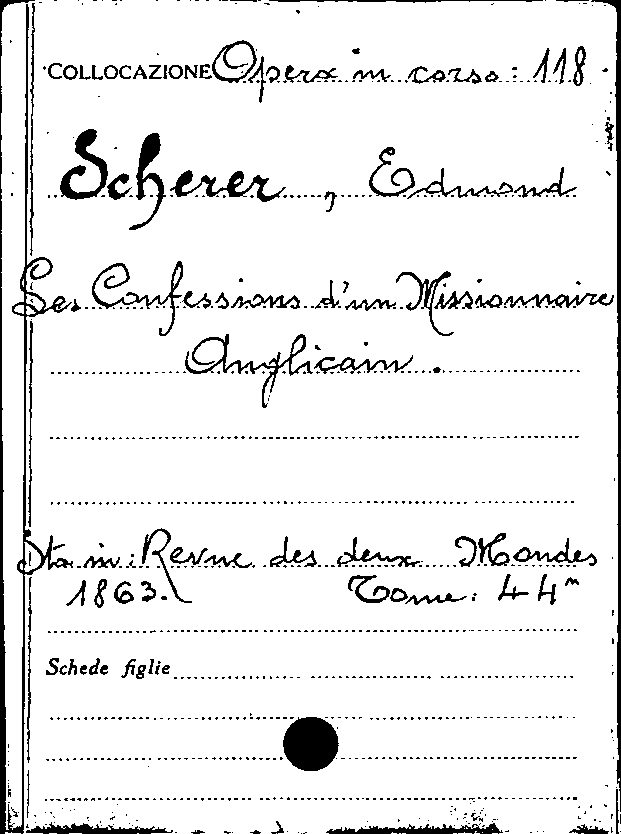 COLLOCAZIONE Opera in corso: 118.
Scherer, Edmond
Les Confessions d'un Missionnaire
Anglicain.
Sta in: Revue des deux Mondes
1863. Tome: 44m
Schede figlie